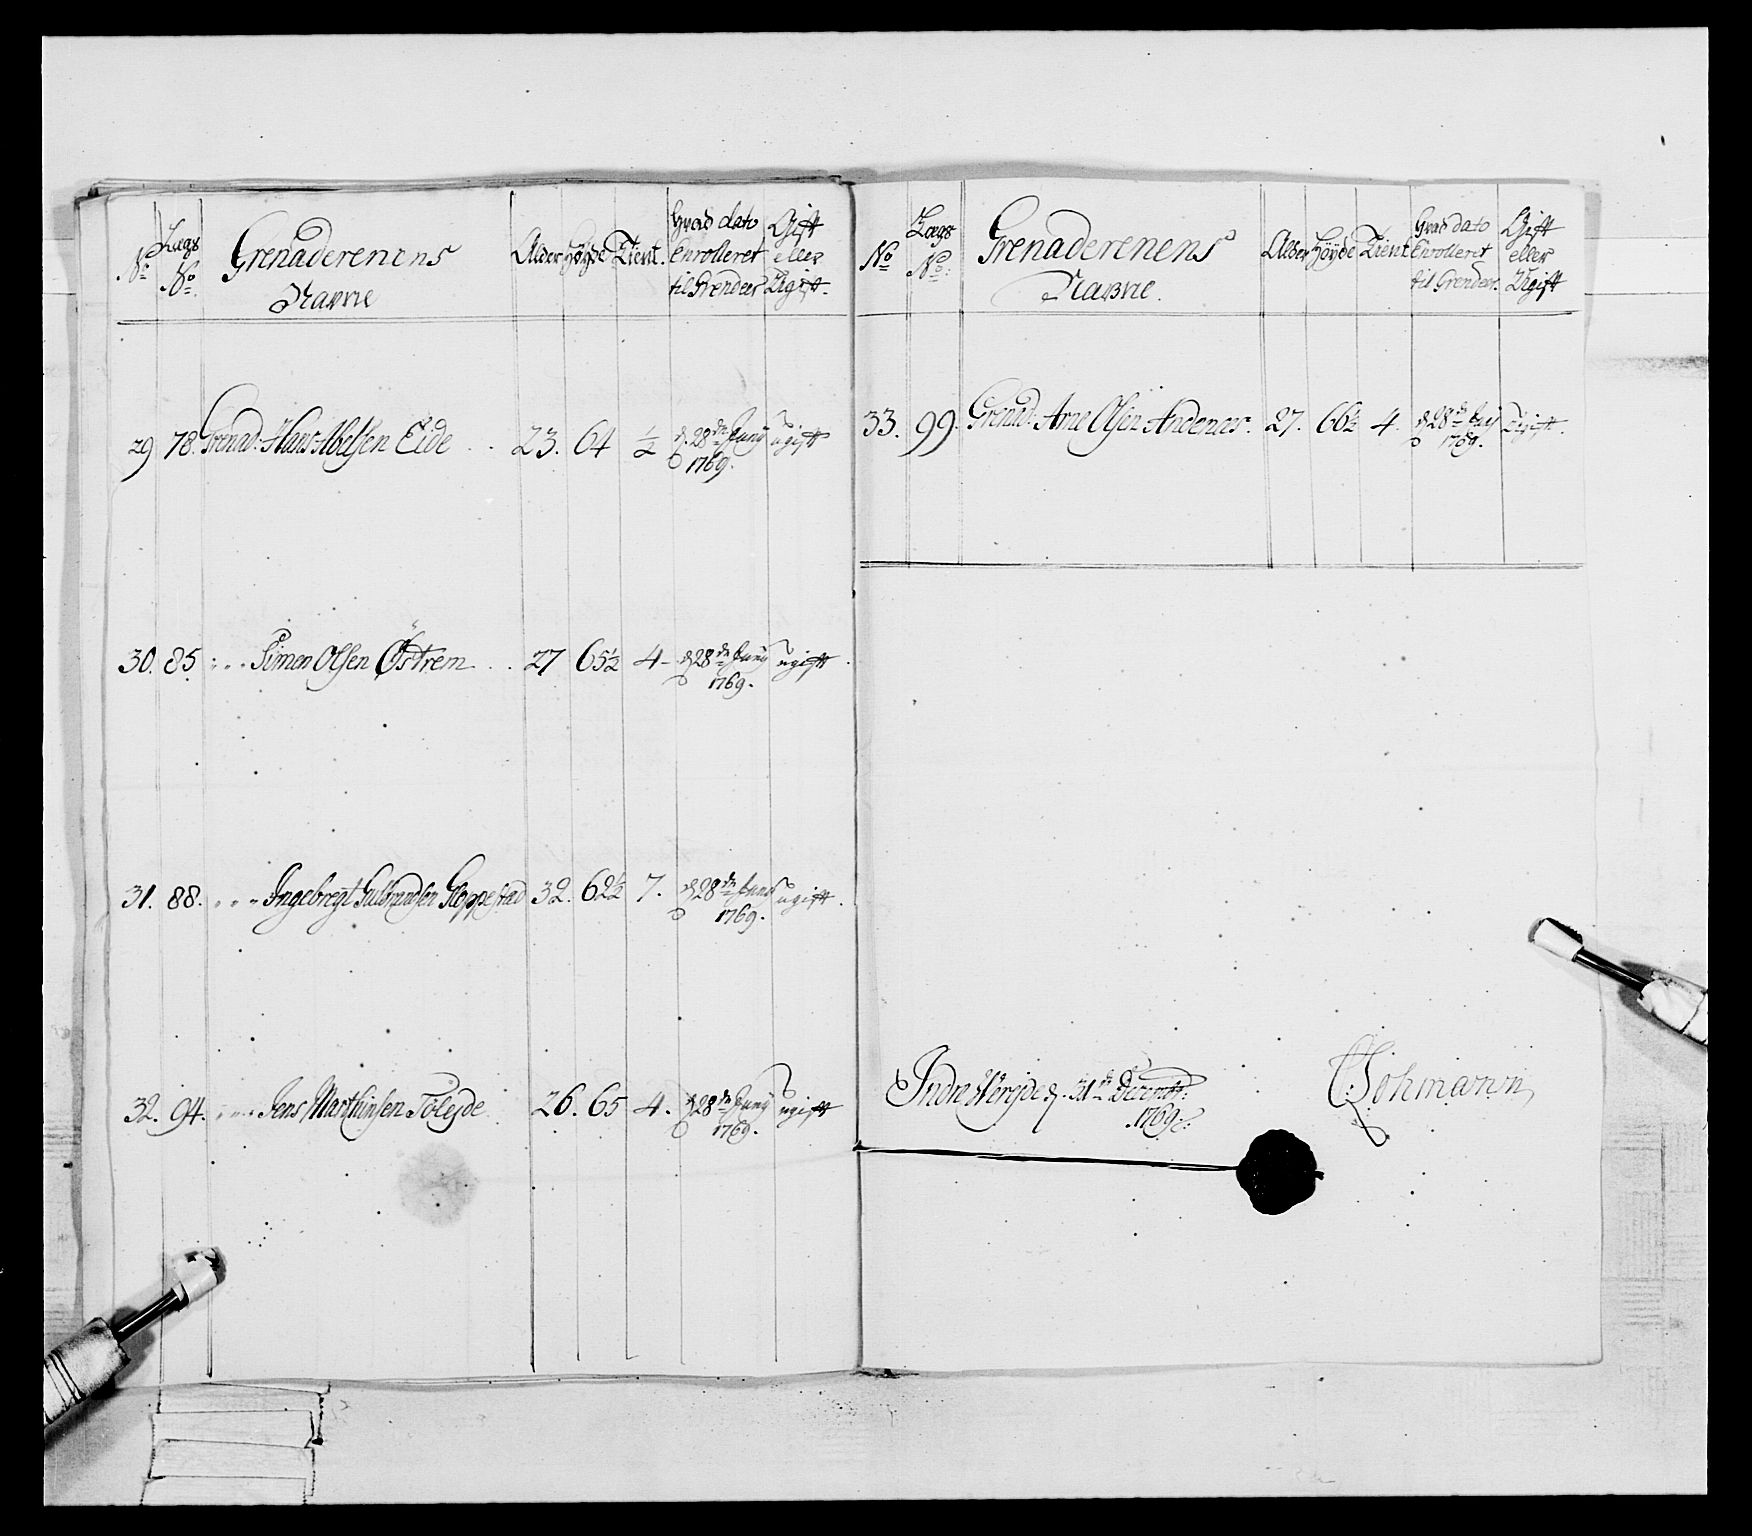 No Lægs No Grenaderenens Navne Alder Höyde Tient. Hvad dato Enrolleret til Grendeer Gift eller Ugift.
29 78. Grenad: Hans Abelsen Eide . . 23. 64 ½ d. 28de Junij 1769. ugift
30. 85 " " Simon Olsen Östrem . . 27 65½ 4 - d 28de Junij 1769. ugift.
31. 88. " " Ingebregt Gulbrandsen Kloppestad 32. 62½ 7. d 28de Junij 1769. ugift.
32. 94. " " Jens Marthinsen Töleyde 26. 65 4. d 28de Junij 1769. ugift
No Lægs No: Grenaderenens Navne. Alder Höyde Tient Hvad dato Enrolleret til Grendeer. Gift eller Ugift
33. 99. Grenad: Arne Olsen Andenæs. 27. 66½ 4. d 28de Junij 1769. Ugift.
Indre Werejde d. 31te Decembr: 1769.
Johmann